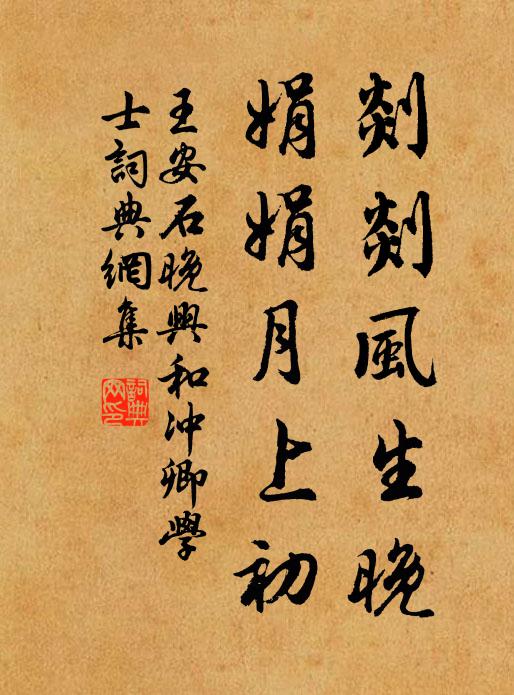 剡剡風生晚
娟娟月上初
王安石晚興和沖卿學
士詞典網集
詞典網印